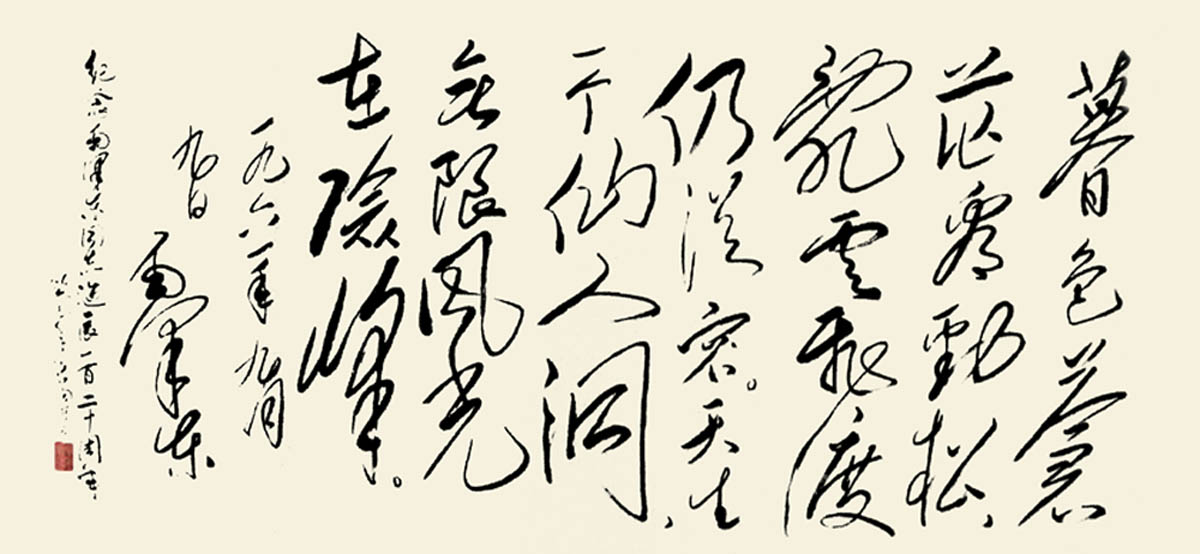 暮色苍
茫看劲松,
乱云飞渡
仍从容。天生,
一个仙人洞
无限风光
在险峰。
一九六一年九月
九日
毛泽东
纪念毛泽东同志诞辰一百二十周年